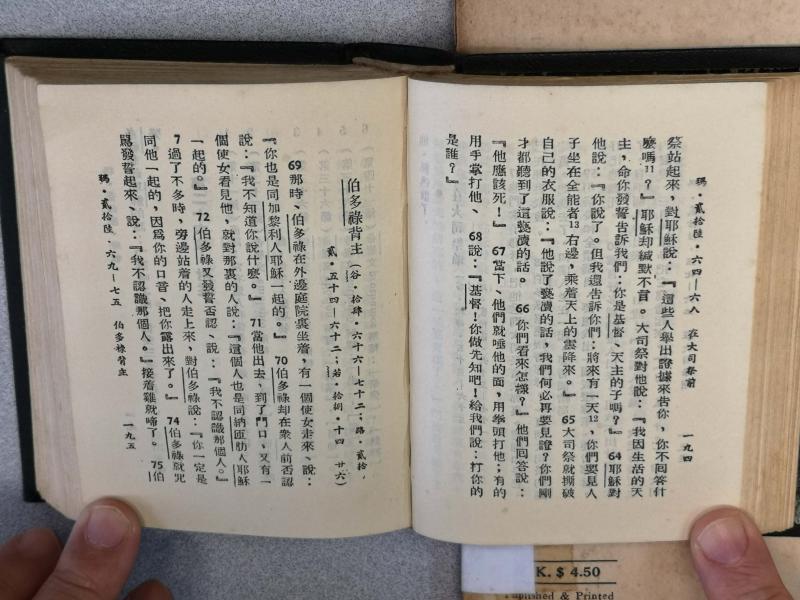 瑪·貳拾陸·六四—六八　在大司祭前　一九四
祭站起來，對耶穌說：『這些人舉出證據來告你，你不回答什
麼嗎11？』耶穌却緘默不言。大司祭對他說：『我因生活的天
主，命你發誓告訴我們：你是基督、天主的子嗎？』64耶穌對
他說：『你說了。但我還告訴你們：將來有一天12，你們要見人
子坐在全能者13右邊，乘着天上的雲降來。』65大司祭就撕破
自己的衣服說：『他說了褻瀆的話，我們何必再要見證？你們剛
才都聽到了這褻瀆的話。66你們看來怎樣？』他們回答說：
『他應該死！』67當下、他們就唾他的面，用拳頭打他；有的
用手掌打他、68說：『基督！你做先知吧！給我們說：打你的
是誰？』
伯多祿背主（谷·拾肆·六十六—七十二；路·貳拾
貳·五十四—六十二；若·拾捌·十四　廿六）
69那時、伯多祿在外邊庭院裏坐着，有一個使女走來、說：
『你也是同加黎利人耶穌一起的。』70伯多祿却在衆人前否認
說：『我不知道你說什麼。』71當他出去，到了門口，又有一
個使女看見他，就對那裏的人說：『這個人也是同納匝肋人耶穌
一起的。』72伯多祿又發誓否認、說：『我不認識那個人。』
7過了不多時，旁邊站着的人走上來，對伯多祿說：『你一定是
同他一起的，因爲你的口音、把你露出來了。』74伯多祿就咒
罵發誓起來、說：『我不認識那個人。』接着雞就啼了。75伯
瑪·貳拾陸·六九—七五　伯多祿背主　一九五
K. $ 4.50
Published & Printed